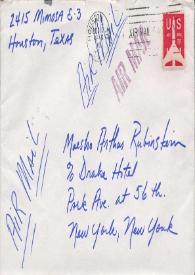 2415 Mimosa E-3
Houston, Texas
Air Mail
AIR MAIL
AIR MAIL
Maestro Arthur Rubinstein
% Drake Hotel
Park Ave. at 56th.
New York, New York
Air Mail